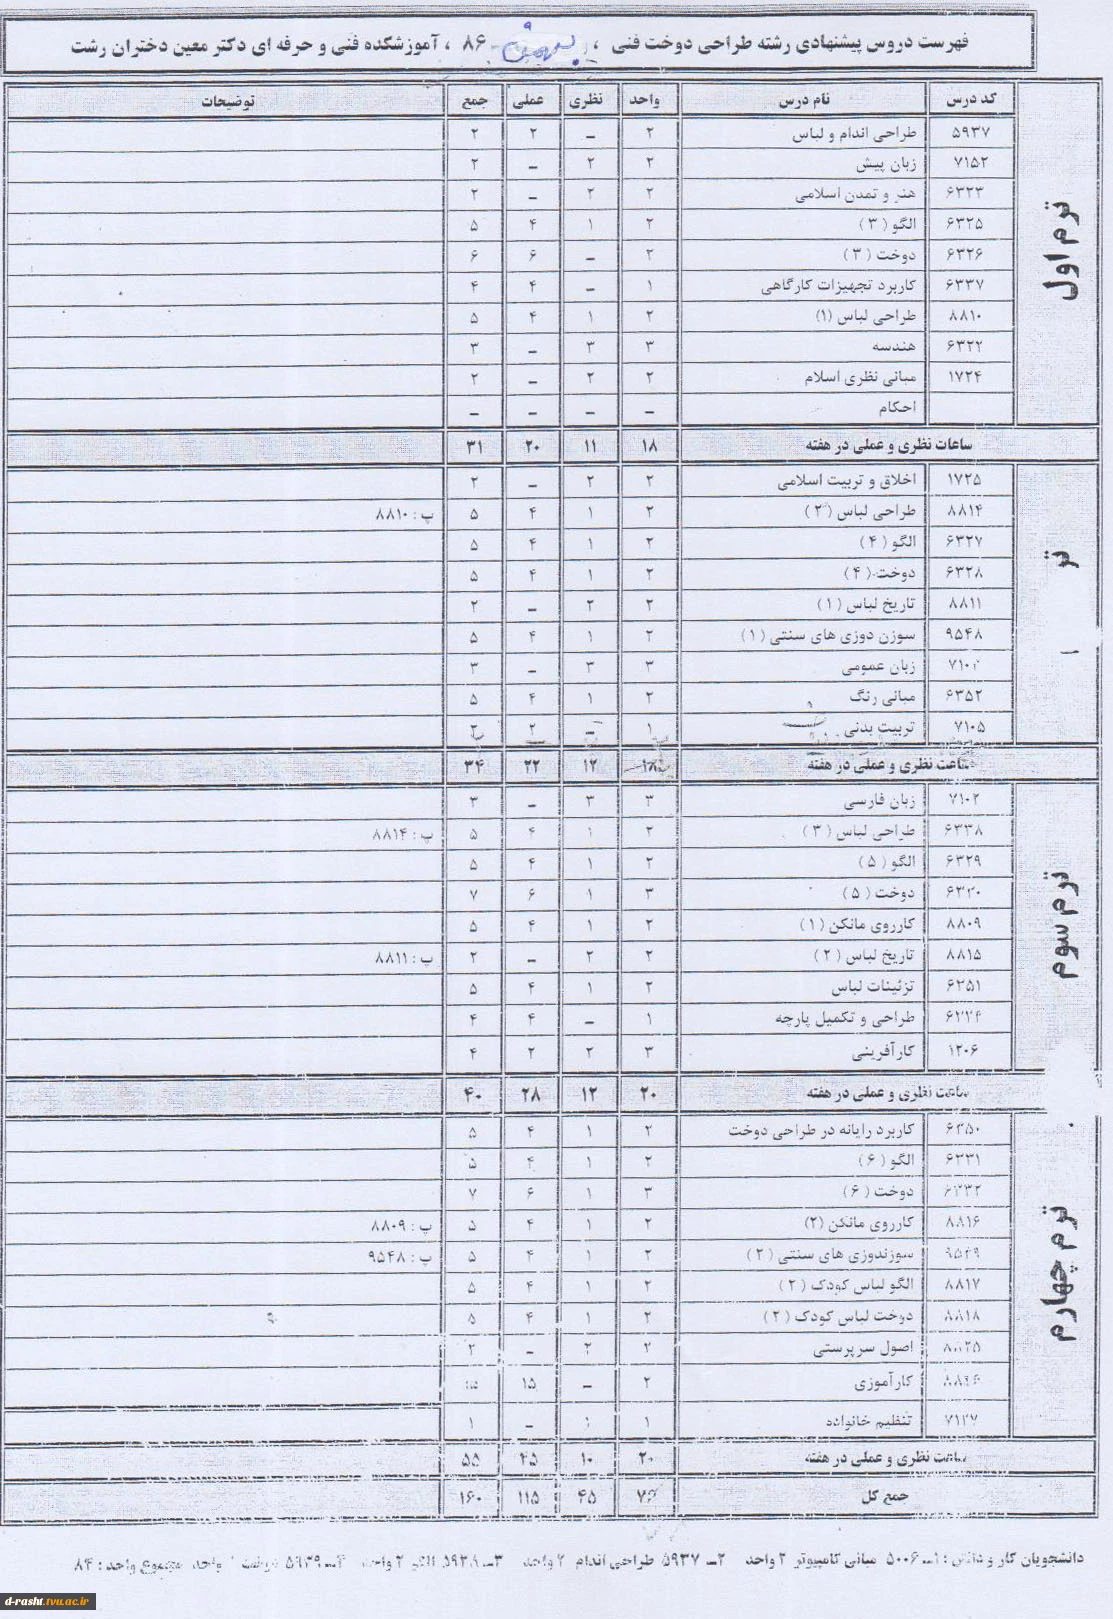 فهرست دروس پیشنهادی رشته طراحی دوخت فنی ، بهمن ۸۶ ، آموزشکده فنی و حرفه ای دکتر معین دختران رشت
کد درس نام درس واحد نظری عملی جمع توضیحات
ترم اول
۵۹۳۷ طراحی اندام و لباس ۲ – ۲ ۲
۷۱۵۲ زبان پیش ۲ ۲ – ۲
۶۳۲۳ هنر و تمدن اسلامی ۲ ۲ – ۲
۶۳۲۵ الگو (۳) ۲ ۱ ۴ ۵
۶۳۲۶ دوخت (۳) ۲ – ۶ ۶
۶۳۳۷ کاربرد تجهیزات کارگاهی ۱ – ۴ ۴
۸۸۱۰ طراحی لباس (۱) ۲ ۱ ۴ ۵
۶۳۲۲ هندسه ۳ ۳ – ۳
۱۷۲۴ مبانی نظری اسلام ۲ ۲ – ۲
احکام – – – –
ساعات نظری و عملی در هفته ۱۸ ۱۱ ۲۰ ۳۱
تر
۱۷۲۵ اخلاق و تربیت اسلامی ۲ ۲ – ۲
۸۸۱۴ طراحی لباس (۲) ۲ ۱ ۴ ۵ پ : ۸۸۱۰
۶۳۲۷ الگو (۴) ۲ ۱ ۴ ۵
۶۳۲۸ دوخت (۴) ۲ ۱ ۴ ۵
۸۸۱۱ تاریخ لباس (۱) ۲ ۲ – ۲
۹۵۴۸ سوزن دوزی های سنتی (۱) ۲ ۱ ۴ ۵
زبان عمومی ۳ ۳ – ۳
۶۳۵۲ مبانی رنگ ۲ ۱ ۴ ۵
۷۱۰۵ تربیت بدنی ۱ – ۲ ۲
ساعت نظری و عملی در هفته ۱۸ ۱۲ ۲۲ ۳۴
ترم سوم
۷۱۰۲ زبان فارسی ۳ ۳ – ۳
۶۳۳۸ طراحی لباس (۳) ۲ ۱ ۴ ۵ پ : ۸۸۱۴
۶۳۲۹ الگو (۵) ۲ ۱ ۴ ۵
دوخت (۵) ۳ ۱ ۶ ۷
۸۸۰۹ کارروی مانکن (۱) ۲ ۱ ۴ ۵
۸۸۱۵ تاریخ لباس (۲) ۲ ۲ – ۲ پ : ۸۸۱۱
تزئینات لباس ۲ ۱ ۴ ۵
طراحی و تکمیل پارچه ۱ – ۴ ۴
۱۲۰۶ کارآفرینی ۳ ۲ ۲ ۴
ساعت نظری و عملی در هفته ۲۰ ۱۲ ۲۸ ۴۰
ترم چهارم
۶۳۵۰ کاربرد رایانه در طراحی دوخت ۲ ۱ ۴ ۵
۶۳۳۱ الگو (۶) ۲ ۱ ۴ ۵
۶۳۳۲ دوخت (۶) ۳ ۱ ۶ ۷
۸۸۱۶ کارروی مانکن (۲) ۲ ۱ ۴ ۵ پ : ۸۸۰۹
۹۵۴۹ سوزندوزی های سنتی (۲) ۲ ۱ ۴ ۵ پ : ۹۵۴۸
۸۸۱۷ الگو لباس کودک (۲) ۲ ۱ ۴ ۵
۸۸۱۸ دوخت لباس کودک (۲) ۲ ۱ ۴ ۵
۸۸۲۵ اصول سرپرستی ۲ ۲ – ۲
کارآموزی ۲ – ۱۵ ۱۵
۷۱۲۷ تنظیم خانواده ۱ ۱ – ۱
ساعت نظری و عملی در هفته ۲۰ ۱۰ ۴۵ ۵۵
جمع کل ۷۶ ۴۵ ۱۱۵ ۱۶۰
دانشجویان کار و دانش : ۱– ۵۰۰۶ مبانی کامپیوتر ۲ واحد ۲– ۵۹۳۷ طراحی اندام ۲ واحد ۳– ۵۹۳۸ الگو ۲ واحد ۴– ۵۹۳۹ واحد مجموع واحد : ۸۴
d-rasht.tvu.ac.ir